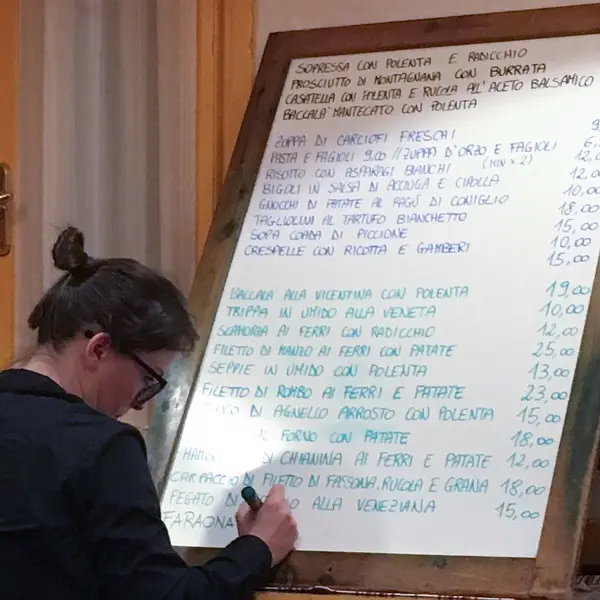 SOPRESSA CON POLENTA E RADICCHIO
PROSCIUTTO DI MONTAGNANA CON BURRATA
CASATELLA CON POLENTA E RUCOLA ALL'ACETO BALSAMICO
BACCALA' MANTECATO CON POLENTA
ZUPPA DI CARCIOFI FRESCHI
PASTA E FAGIOLI 9,00 // ZUPPA D'ORZO E FAGIOLI
RISOTTO CON ASPARAGI BIANCHI (MIN x 2) 12,00
BIGOLI IN SALSA DI ACCIUGA E CIPOLLA 10,00
GNOCCHI DI PATATE AL RAGÚ DI CONIGLIO 18,00
TAGLIOLINI AL TARTUFO BIANCHETTO 15,00
SOPA COADA DI PICCIONE 10,00
CRESPELLE CON RICOTTA E GAMBERI 15,00
BACCALA ALLA VICENTINA CON POLENTA 19,00
TRIPPA IN UMIDO ALLA VENETA 10,00
SCAMORZA AI FERRI CON RADICCHIO 12,00
FILETTO DI MANZO AI FERRI CON PATATE 25,00
SEPPIE IN UMIDO CON POLENTA 13,00
FILETTO DI ROMBO AI FERRI E PATATE 23,00
DI AGNELLO ARROSTO CON POLENTA 15,00
AL FORNO CON PATATE 18,00
DI CHIANINA AI FERRI E PATATE 12,00
CARPACCIO DI FILETTO DI FASSONA, RUCOLA E GRANA 18,00
FEGATO DI ALLA VENEZIANA 15,00
FARAONA